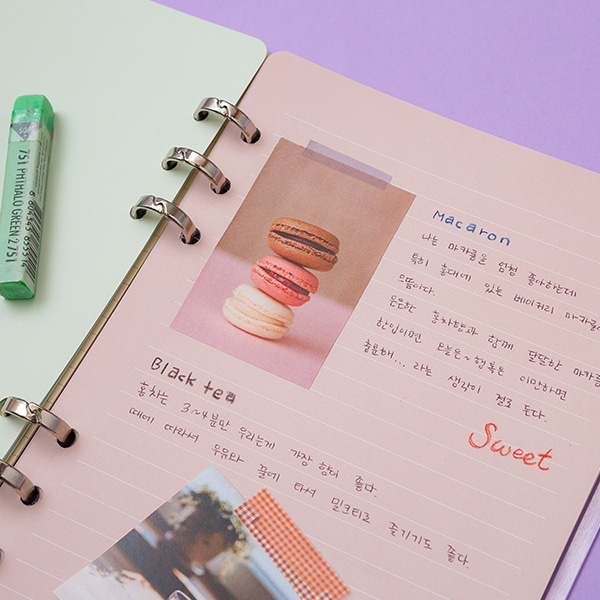 751 PHTHALO GREEN 2751
Macaron
나는 마카롱을 엄청 좋아하는데
특히 홍대에 있는 베이커리 마카롱
으뜸이다.
은은한 홍차향과 함께 달달한 마카롱
한입이면 오늘은~ 행복은 이만하면
충분해... 라는 생각이 절로 든다.
Sweet
Black tea
홍차는 3~4분만 우리는게 가장 향이 좋다.
때에 따라서 우유와 꿀에 타서 밀크티로 즐기기도 좋다.